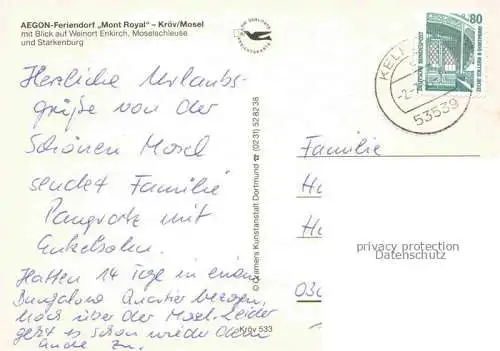 AEGON-Feriendorf „Mont Royal“ – Kröv/Mosel
mit Blick auf Weinort Enkirch, Moselschleuse
und Starkenburg
Herzliche Urlaubs-
grüße von der
Schönen Mosel
sendet Familie
mit
Enkelsohn.
Hatten 14 Tage in einem
Bungalow Quartier bezogen,
hoch über der Mosel. Leider
geht es schon wieder dem
Ende zu.
Kröv 533
© Cramers Kunstanstalt Dortmund ☎ (0231) 528238
80
DEUTSCHE BUNDESPOST
53539
Familie
privacy protection
Datenschutz
030